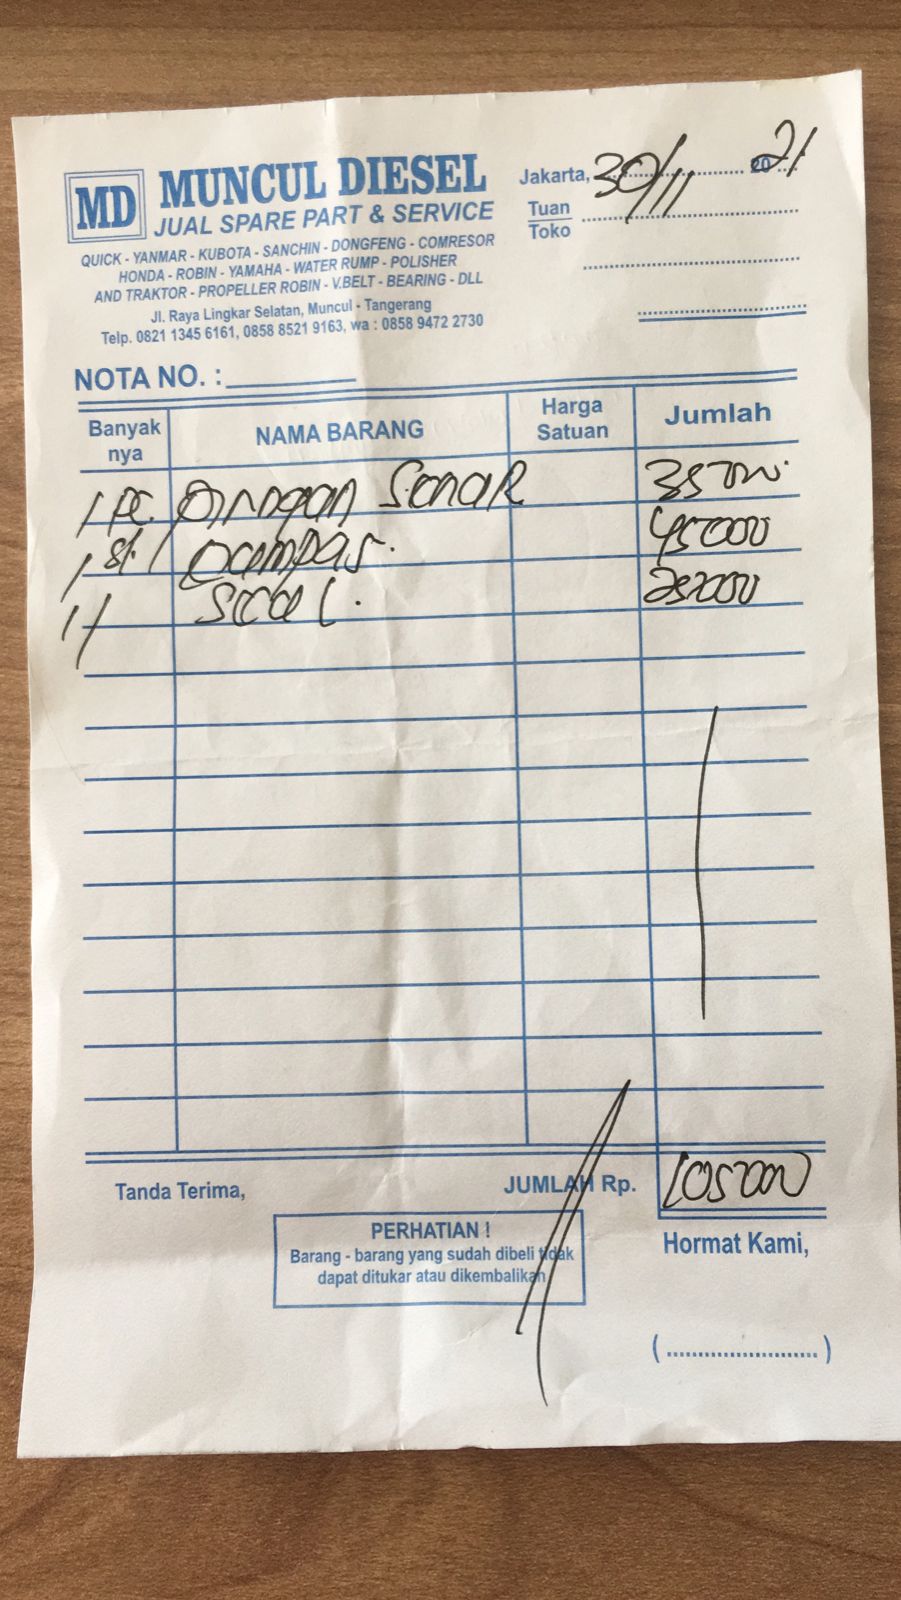 MD
MUNCUL DIESEL
JUAL SPARE PART & SERVICE
QUICK - YANMAR - KUBOTA - SANCHIN - DONGFENG - COMRESOR
HONDA - ROBIN - YAMAHA - WATER RUMP - POLISHER
AND TRAKTOR - PROPELLER ROBIN - V.BELT - BEARING - DLL
Jl. Raya Lingkar Selatan, Muncul - Tangerang
Telp. 0821 1345 6161, 0858 8521 9163, wa : 0858 9472 2730
Jakarta, 30/11 2021
Tuan
Toko
NOTA NO. :
Banyak nya NAMA BARANG Harga Satuan Jumlah
1 pc. 35000
1 st. 45000
11 Seal. 25000
Tanda Terima, JUMLAH Rp. 105000
PERHATIAN !
Barang - barang yang sudah dibeli tidak
dapat ditukar atau dikembalikan
Hormat Kami,
(........................)